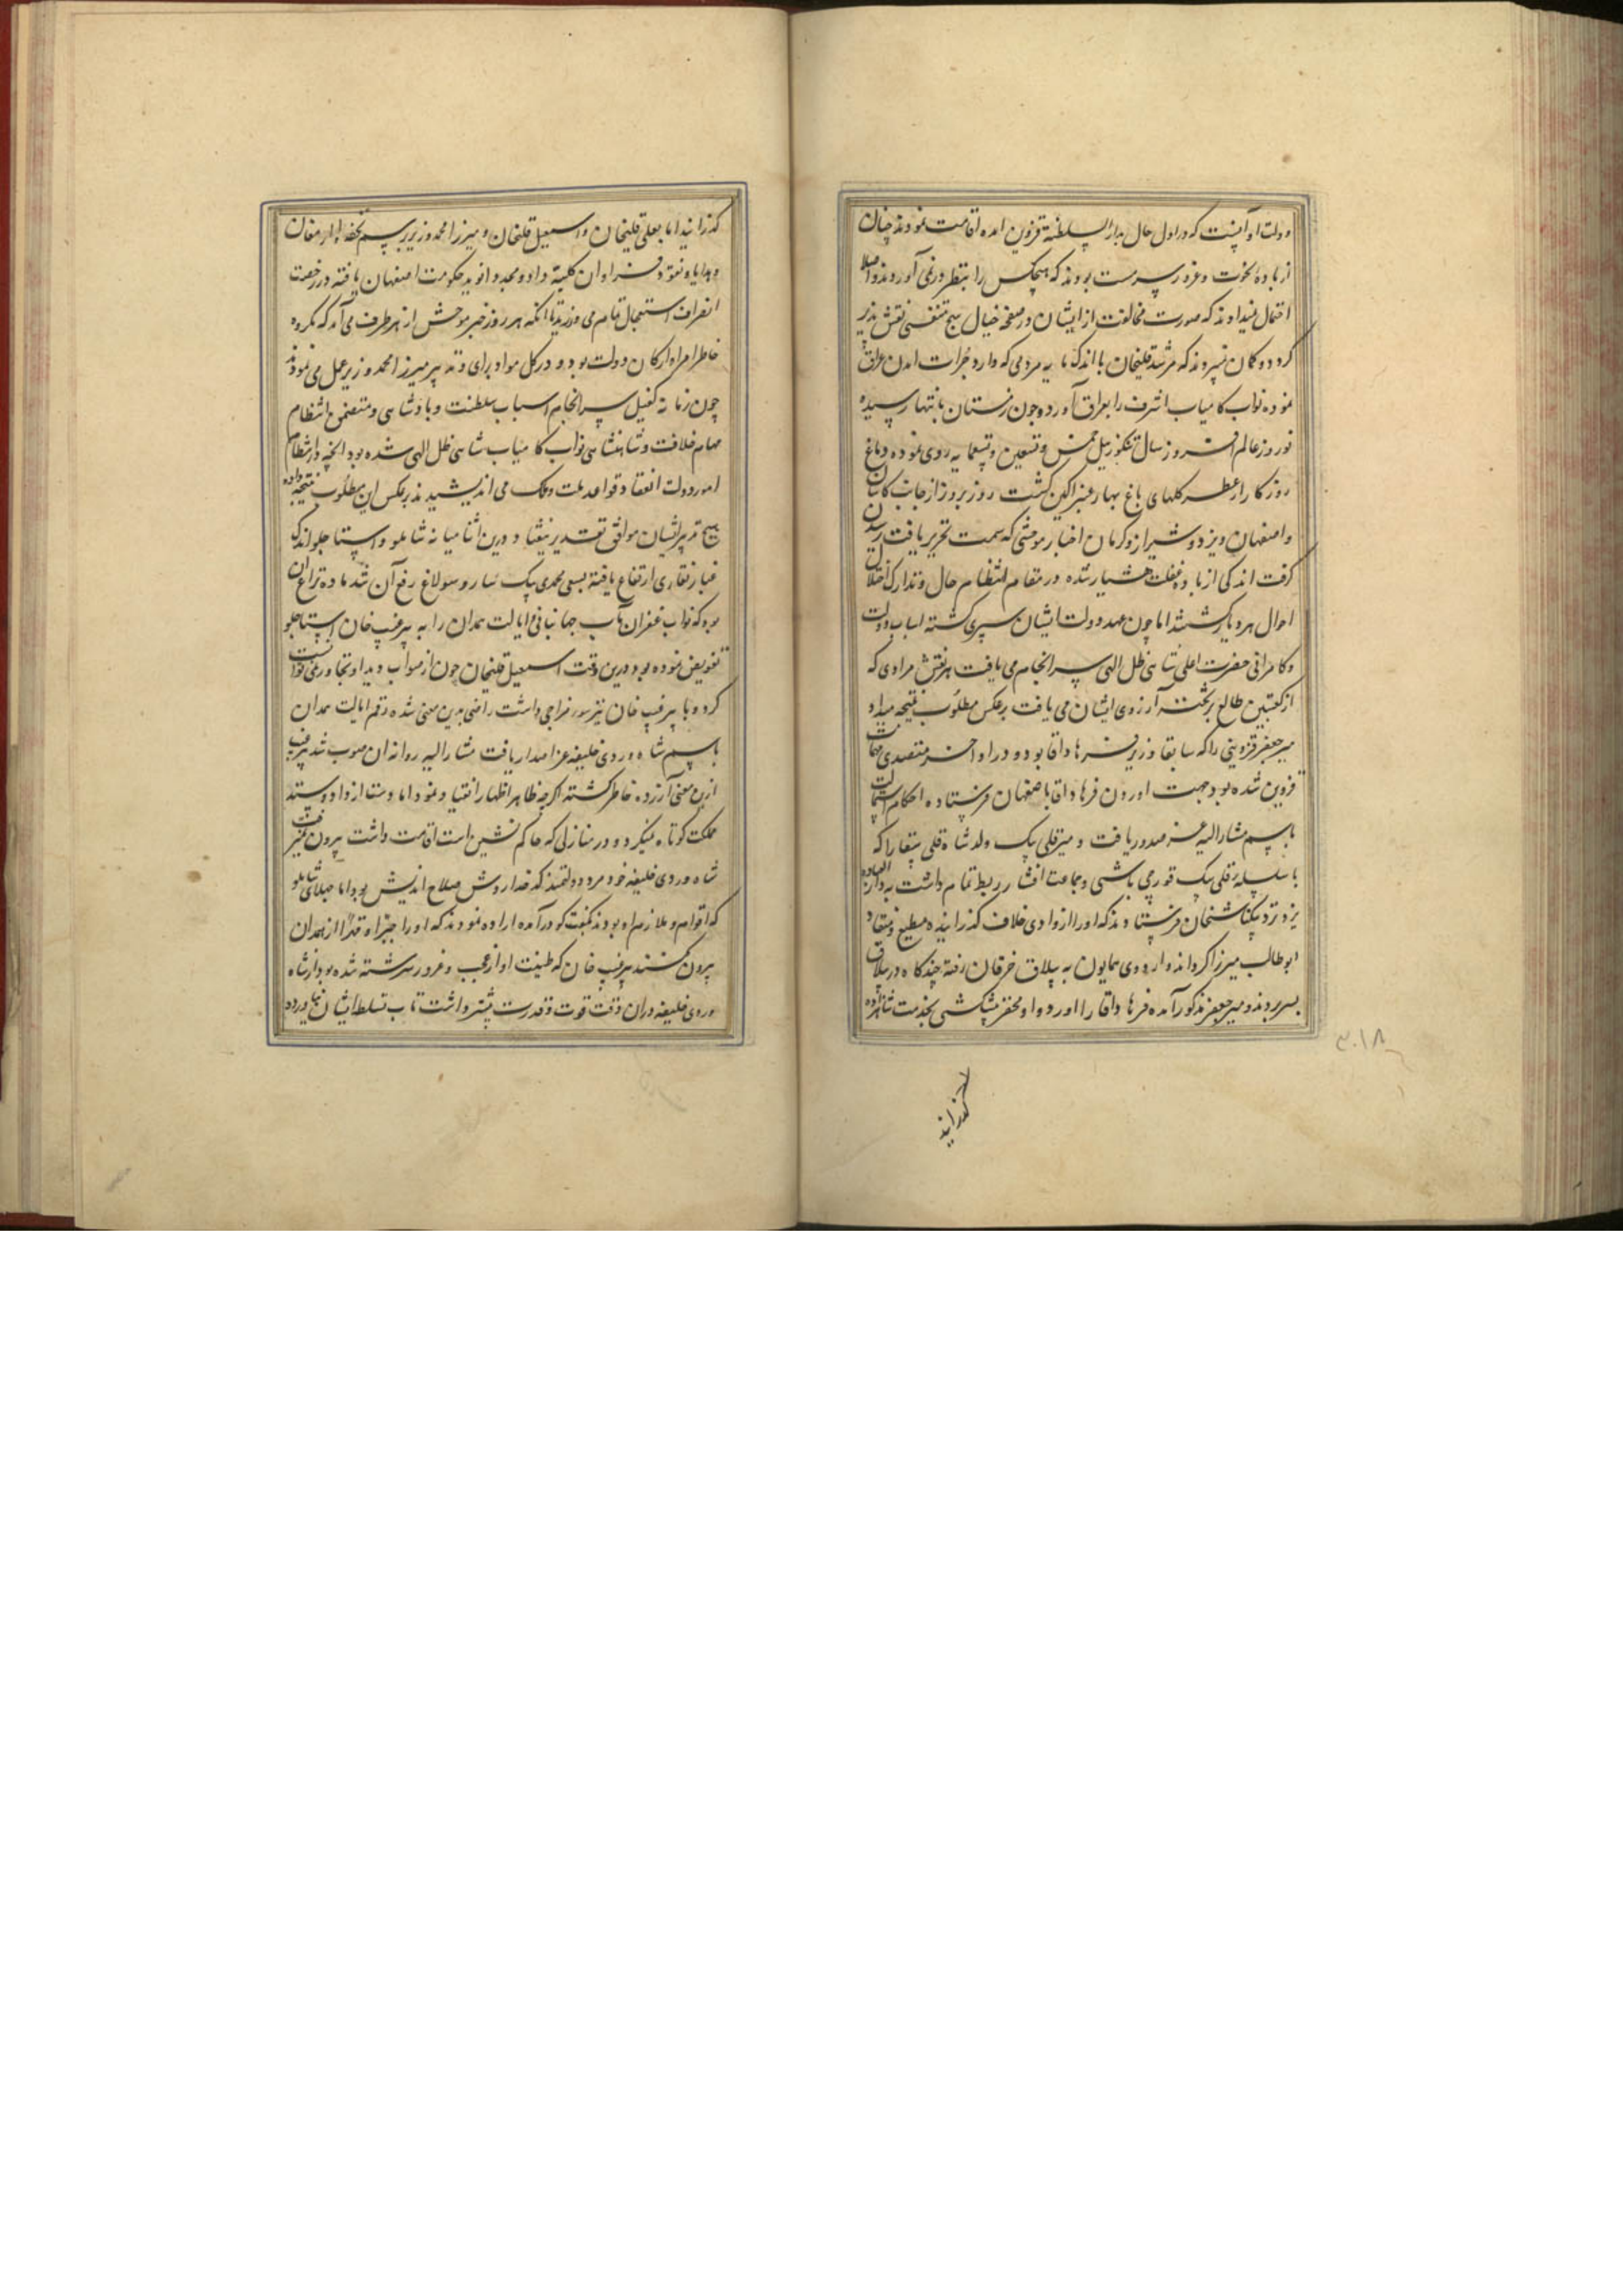 دولت او آنست که در اول حال بدار السلطنة قزوین امده اقامت نمودند چنان
از بادهٔ نخوت و غرور سرمست بودند که هیچکس را بنظر در نمی آوردند و اصلا
احتمال نمیدادند که صورت مخالفت از ایشان در صفحه خیال هیچ متنفسی نقش پذیر
گردد و گمان نمیبردند که مرشد قلیخان با اندک مایه مردمی که دارد جرات امدن عراق
نموده نواب کامیاب اشرف را بعراق آورد و چون زمستان بانتها رسیده
نوروز عالم افروز سال تنکوزئیل خمس و تسعین و تسعمایه روی نموده دماغ
روزکار از عطر کلهای باغ بهار عنبر اکین کشت روز بروز از جانب کاشان
و اصفهان و یزد و شیراز و کرمان اخبار موحشی که سمت تحریر یافت رسیدن
کرفت اندکی از باده غفلت هشیار شده در مقام انتظام حال و تدارک اختلال
احوال هر دیار کشتند اما چون عهد دولت ایشان سپری کشته اسباب دولت
و کامرانی حضرت اعلی شاهی ظل الهی سرانجام می یافت هر نقش مرادی که
از کعبتین طالع برتخته آرزوی ایشان می یافت برعکس مطلوب نتیجه میداد
میرجعفر قزوینی را که سابقا وزیر فرهاد اقا بود و در اواخر متصدی مهمات
قزوین شده بود جهت اوردن فرهاد اقا باصفهان فرستاده احکام استمالت
باسم مشارالیه عز صدور یافت و میرقلی بیک ولد شاه قلی را که
با سلسله قلی بیک قورچی باشی و جماعت افشار ربط تمام داشت بدار العباده
یزد نزد بیکتاش خان فرستادند که او را از وادی خلاف کذرانیده مطیع و منقاد
ابوطالب میرزا کرداند و اردوی همایون به ییلاق خرقان رفته چند کاه در ییلاق
بسر بردند و میرجعفر مذکور آمده فرهاد اقا را اورد و او محقر پیشکشی بخدمت شاهزاده
گذرانید
۳۰۱۸
کذرانید اما بعلی قلیخان و اسمعیل قلیخان و میرزا محمد وزیر برسم تحفه و ارمغان
و هدایا و نقود فراوان کلیة داد و مجددا نوید حکومت اصفهان یافته در رخصت
انصراف استعجال تمام می ورزید تا انکه هر روز خبر موحش از هر طرف می آمد که مکروه
خاطر امرا و ارکان دولت بود و در کل مواد برای و تدبیر میرزا محمد وزیر عمل می نمودند
چون زمانه کفیل سرانجام اسباب سلطنت و پادشاهی و متضمن انتظام
مهام خلافت و شاهنشاهی نواب کامیاب شاهی ظل الهی شده بود انچه در انتظام
امور دولت انعقاد قواعد ملت و ملک می اندیشیدند برعکس ان مطلوب نتیجه داده
هیچ تدبیر ایشان موافق تقدیر نیفتاد و درین اثنا میانه شاملو و استاجلو اندک
غبار نقاری ارتفاع یافته بسعی محمدی بیک ساروسولاغ رفع آن شد ماده نزاع ان
بود که نواب غفران مآب جهانبانی ایالت همدان را به پیرغیب خان استاجلو
تفویض نموده بود درین وقت اسمعیل قلیخان چون از صواب دید او تجاوز نمی توانست
کرد و با پیرغیب خان نیز سوء مزاجی داشت راضی بدین معنی شده رقم ایالت همدان
باسم شاه وردی خلیفه عز اصدار یافت مشار الیه روانه ان صوب شد پیرغیب
ازین معنی آزرده خاطر کشته اکرچه ظاهرا اظهار انقیاد نمود اما دست از داد و ستد
مملکت کوتاه نمیکرد و در منازلی که حاکم نشین است اقامت داشت بیرون نمیرفت
شاه وردی خلیفه خود مرد دولتمند کدخدا روش صلاح اندیش بود اما جهلای شاملو
که اقوام و ملازم او بودند بگفت کو درآمده اراده نمودند که او را جبرا و قهرا از همدان
بیرون کنند پیرغیب خان که طینت او از عجب و غرور سرشته شده بود از شاه
وردی خلیفه دران وقت قوت و قدرت بیشتر داشت تاب تسلط ایشان نیاورده